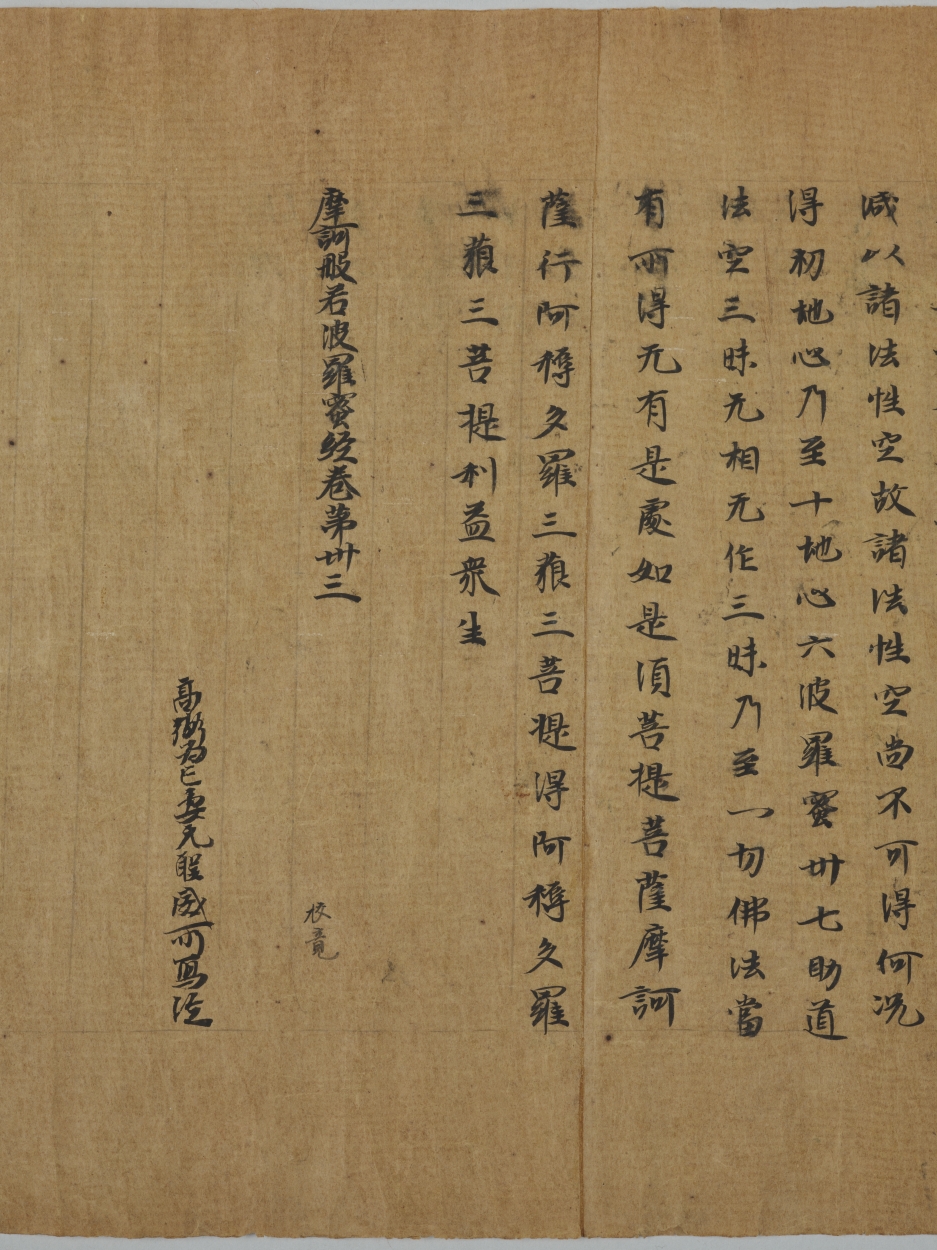 減以諸法性空故諸法性空尚不可得何況
得初地心乃至十地心六波羅蜜卅七助道
法空三昧无相无作三昧乃至一切佛法當
有所得无有是處如是須菩提菩薩摩訶
薩行阿耨多羅三藐三菩提得阿耨多羅
三藐三菩提利益眾生
摩訶般若波羅蜜經卷第卅三
校竟
高弼為亡妻元聖威所寫經